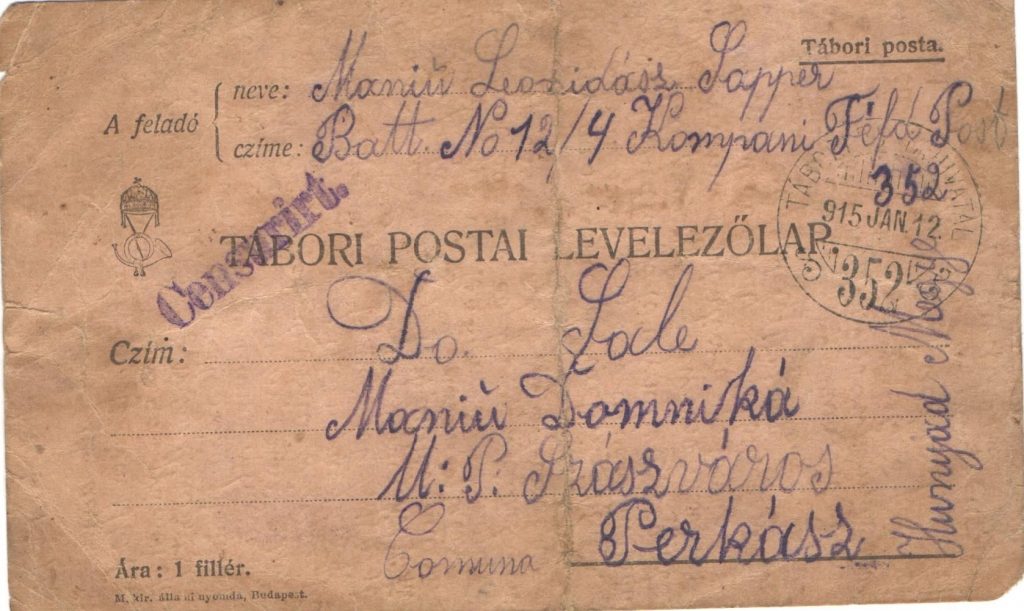 Tábori posta.
A feladó
neve: Maniŭ Leonidász Sapper
czíme: Batt. No 12/4 Kompani Féld Post
352
TÁBORI POSTAHIVATAL
915 JAN. 12.
352
Censurirt.
TÁBORI POSTAI LEVELEZŐLAP.
Czím: Do. Sale
Maniŭ Domniká
U: P. Szászváros
Comuna Perkász
Hunnyad Megye
Ára: 1 fillér.
M. kir. állami nyomda, Budapest.